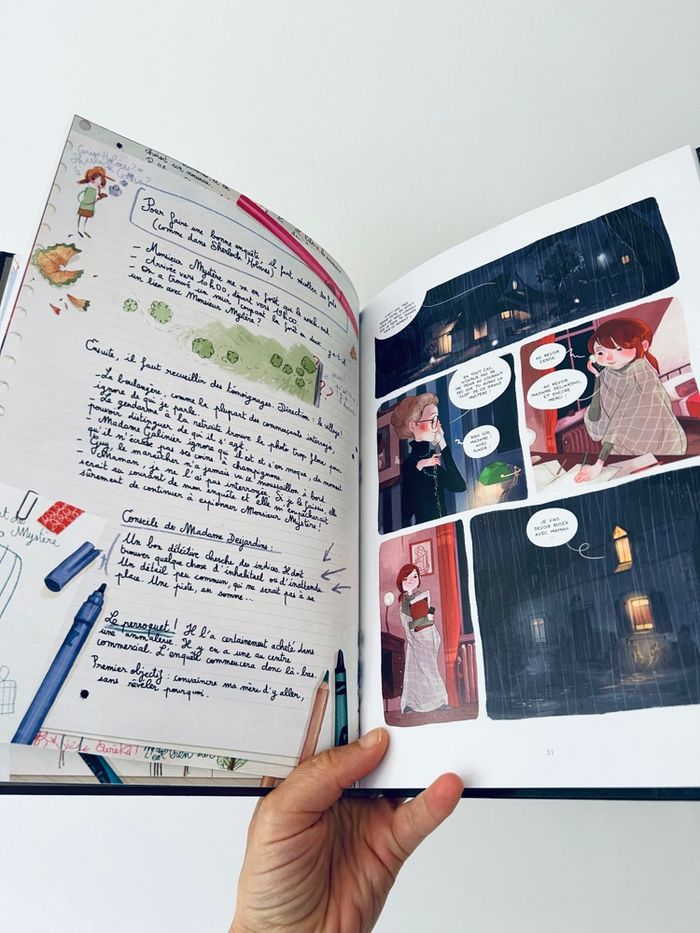 Pour faire une bonne enquête, il faut récolter des faits
(comme dans Sherlock Holmes)
- Monsieur Mystère ne va en forêt que le week-end
- Arrivée vers 10h00, départ vers 19h00
- On a trouvé un mur coupant la forêt en deux. Y a-t-il
un lien avec Monsieur Mystère ?
Ensuite, il faut recueillir des témoignages. Direction : le village !
- La boulangère, comme la plupart des commerçants interrogés,
ignore de qui je parle.
- Le gendarme à la retraite trouve la photo trop floue pour
pouvoir distinguer de qui il s'agit.
- Madame Galinier ignore qui il est et s'en moque, du moment
qu'il n'évente pas ses coins à champignons.
- Jean le maraîcher n'a jamais vu ce moussaillon à bord.
- Maman : je ne l'ai pas interrogée. Si je le faisais, elle
serait au courant de mon enquête et elle m'empêcherait
sûrement de continuer à espionner Monsieur Mystère !
Conseils de Madame Desjardins :
Un bon détective cherche des indices. Il doit
trouver quelque chose d'inhabituel ou d'inattendu.
Un détail peu commun, qui ne serait pas à sa
place. Une piste, en somme...
Le perroquet ! Il l'a certainement acheté dans
une animalerie. Il y en a une au centre
commercial. L'enquête commencera donc là-bas.
Premier objectif : convaincre ma mère d'y aller,
sans révéler pourquoi.
Mystère
Eurêka !
EN TOUT CAS,
BIEN SÛR,
MADAME !
AVEC
PLAISIR !
AU REVOIR
CERISE.
AU REVOIR
MADAME DESJARDINS,
ET ENCORE
MERCI !
JE VAIS
DEVOIR RUSER
AVEC MAMAN
31